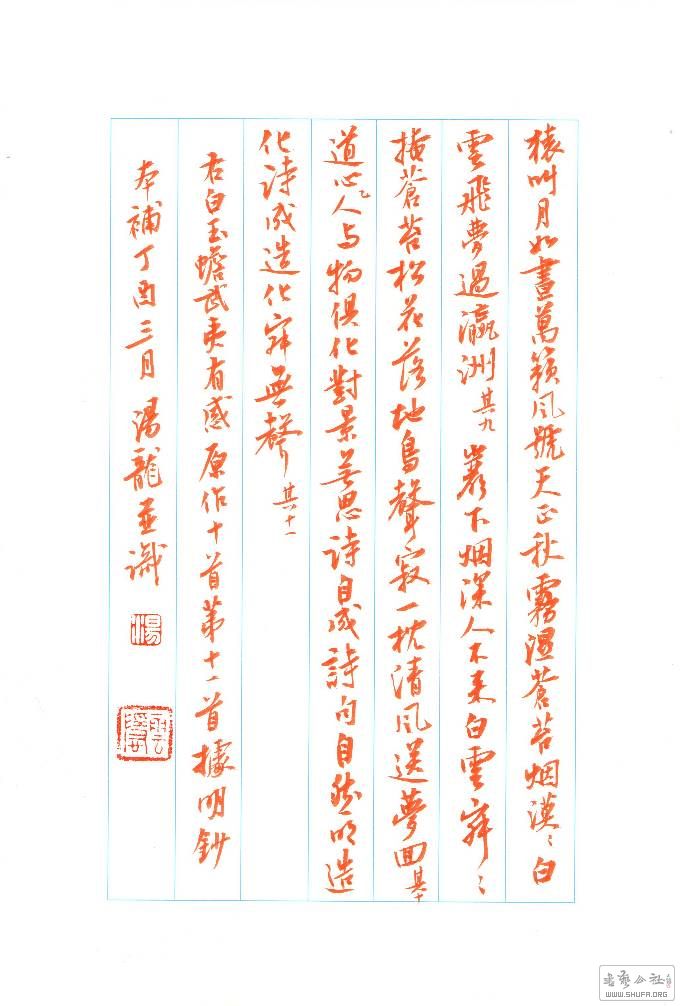 猿叫月如畫萬籟風號天正秋霧濕蒼苔烟漠〻白
雲飛夢過瀛洲 其九 巖下烟深人不來白雲寂〻
掩蒼苔松花落地鳥聲寂一枕清風送夢回 其十
道心人与物俱化對景無思詩自成詩句自然明造
化詩成造化寂無聲 其十一
右白玉蟾武夷有感原作十首第十一首據明鈔
本補丁酉三月 湯龍並識
WWW.SHUFA.ORG